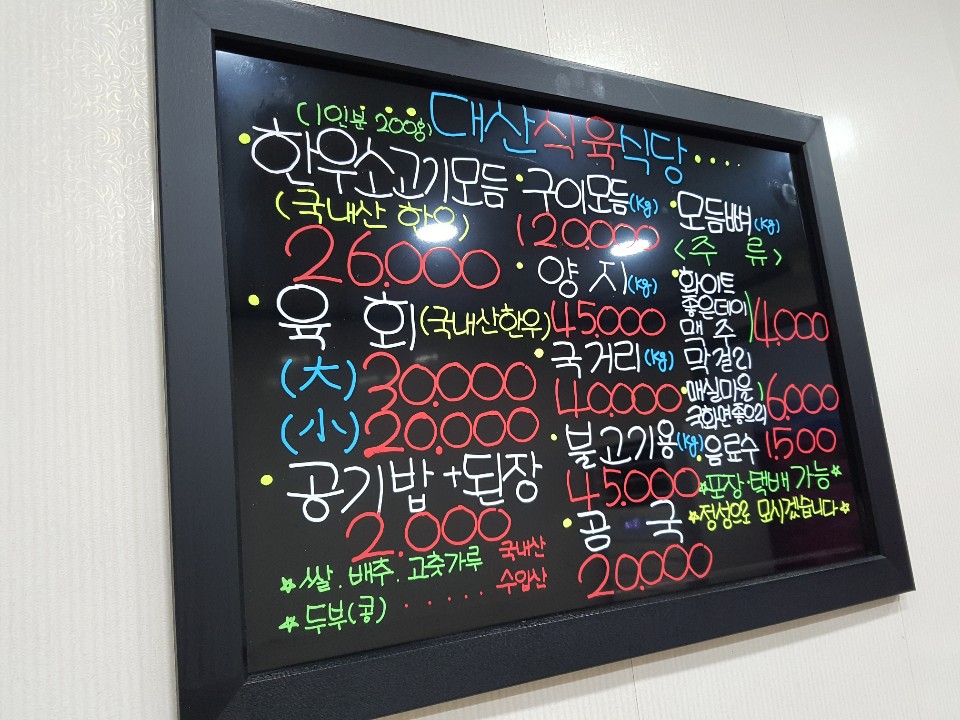 대산식육식당....
(1인분 200g)
한우소고기모듬
(국내산 한우)
26.000
육 회 (국내산한우)
(大) 30.000
(小) 20.000
공기밥+된장
2.000
쌀.배추.고춧가루 국내산
두부(콩)..... 수입산
구이모듬(kg)
120.000
양 지(kg)
45.000
국거리(kg)
40.000
불고기용(kg)
45.000
곰 국
20.000
모듬뼈(kg)
<주 류>
화이트
좋은데이
맥 주
막걸리
4.000
매실마을
국화면좋으리
6.000
음료수 1.500
포장·택배 가능
정성으로 모시겠습니다